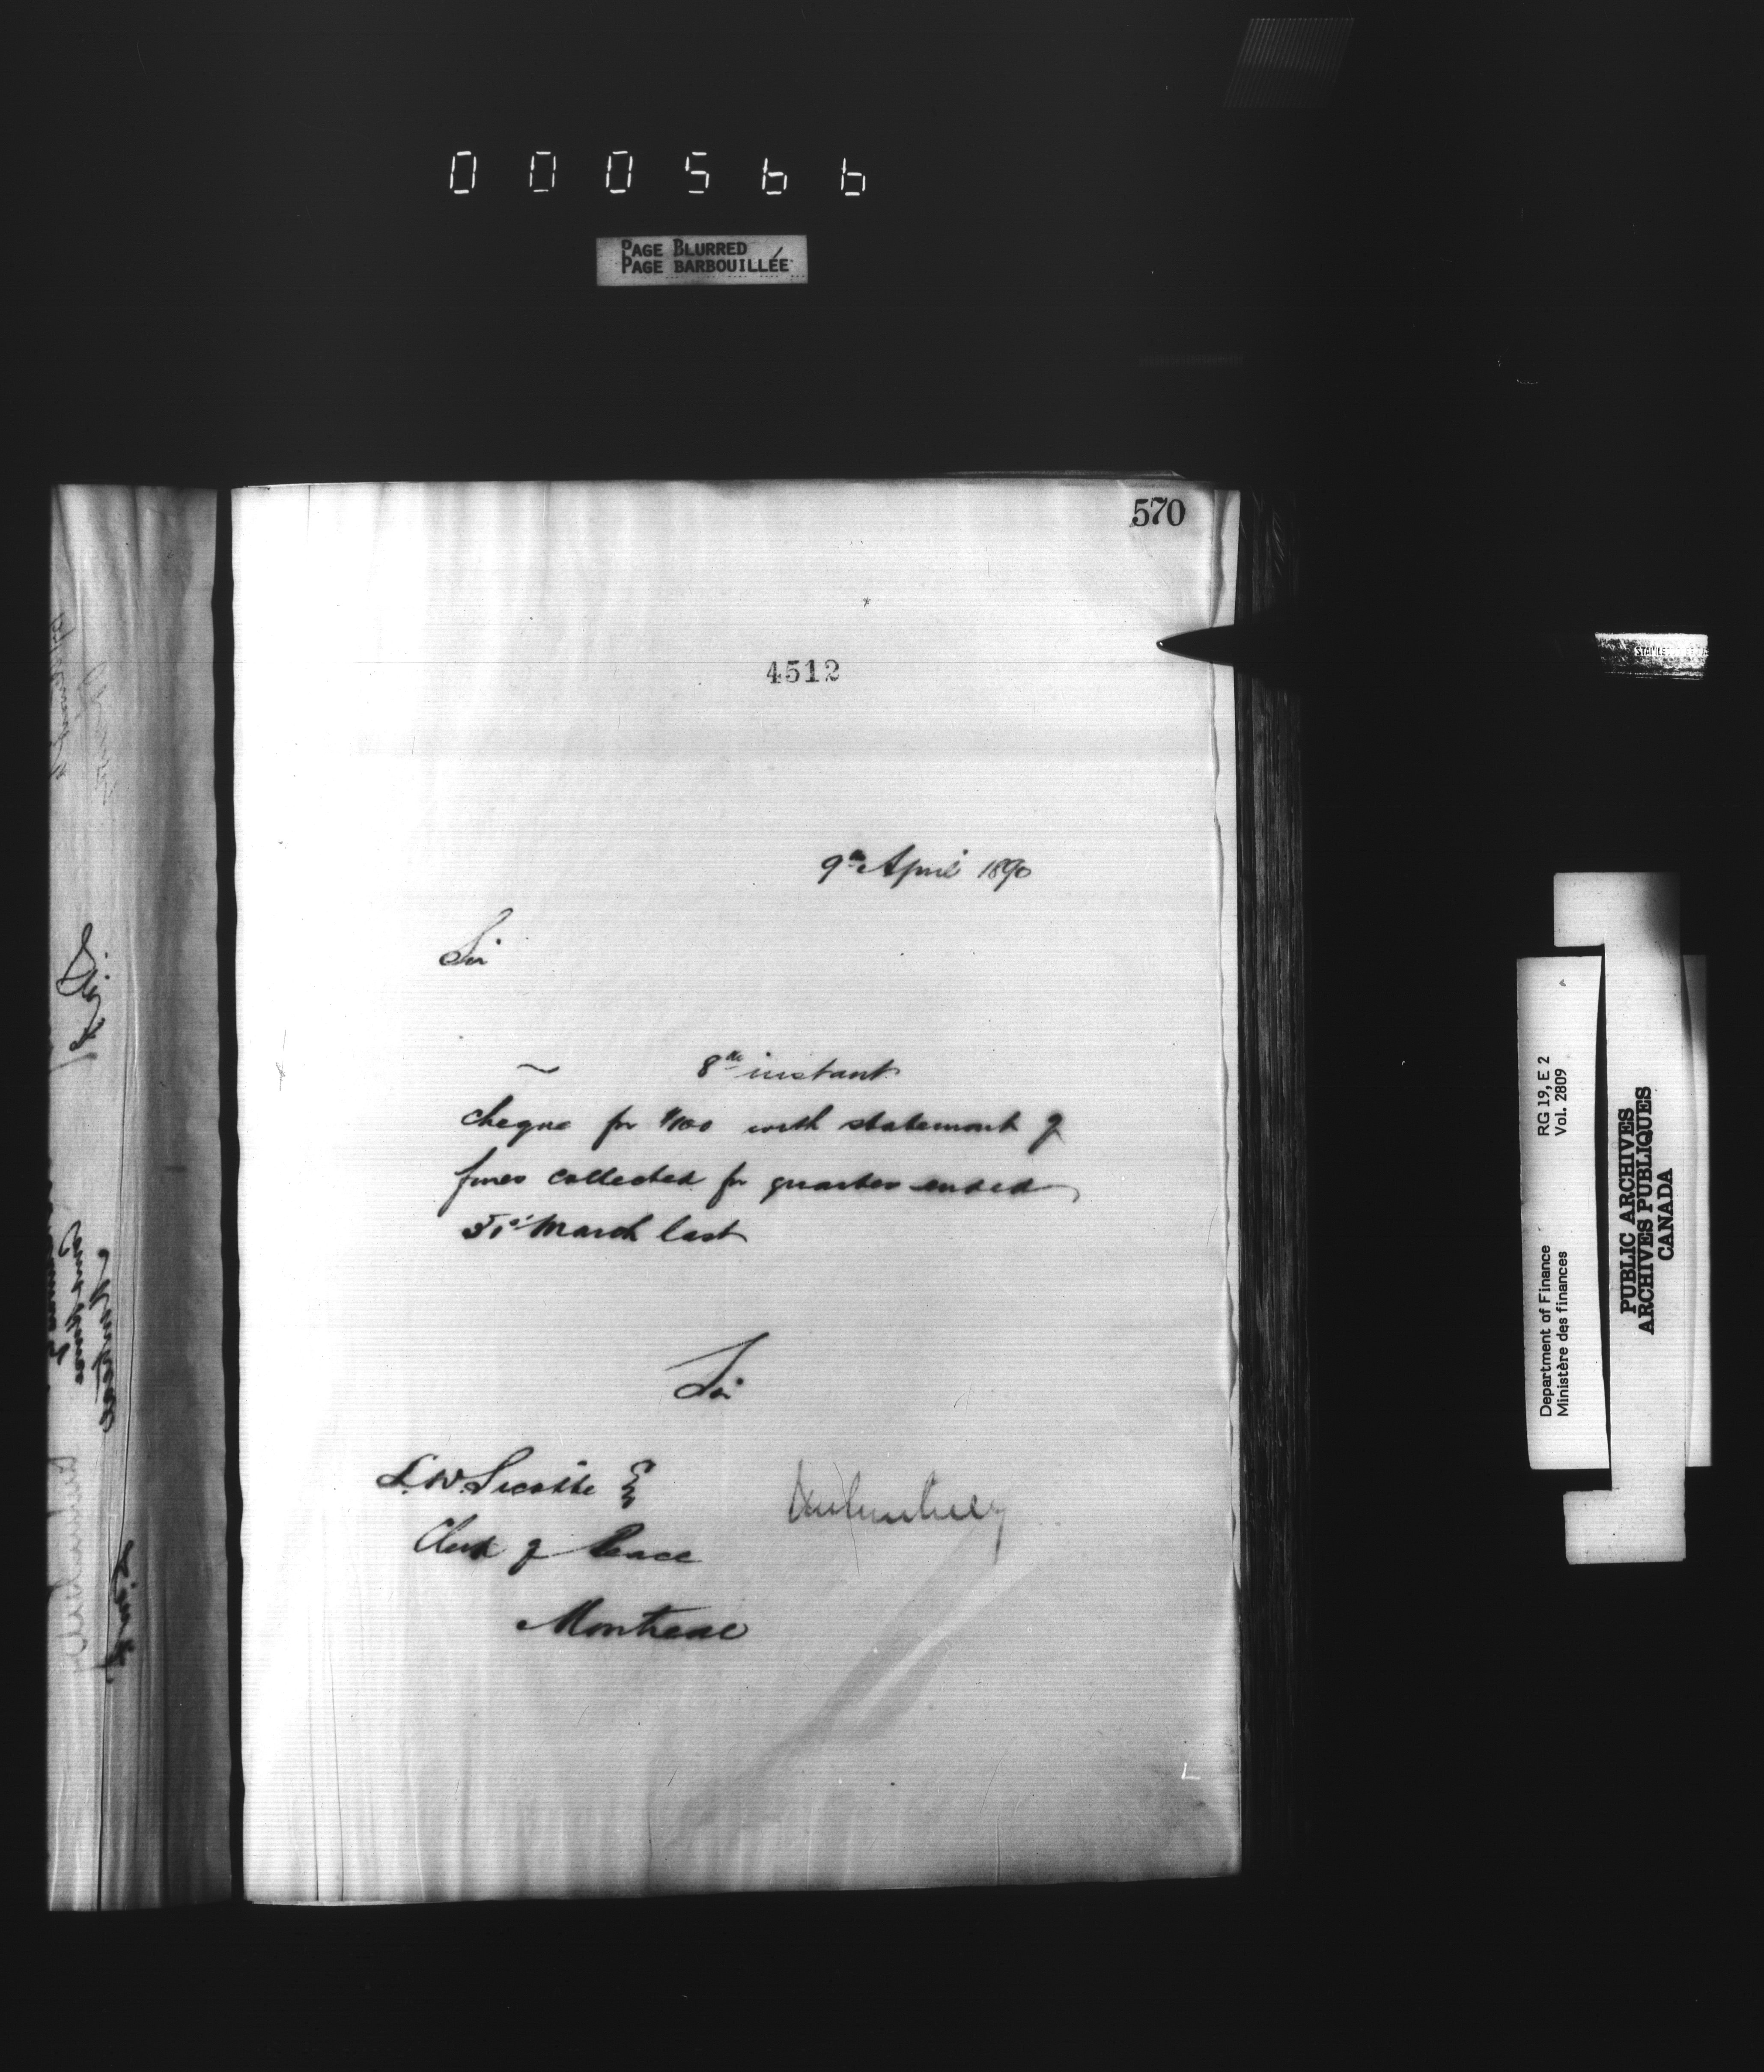 000566
PAGE BLURRED
PAGE BARBOUILLÉE
570
4512
9th April 1890
Sir
8th instant
cheque for $100 with statement of
fines collected for quarter ended
31st March last
Sir
L.W. Sicotte E
Clerk of Peace
Montreal
RG 19, E 2
Vol. 2809
Department of Finance
Ministère des finances
PUBLIC ARCHIVES
ARCHIVES PUBLIQUES
CANADA